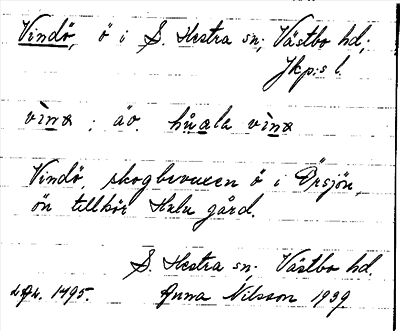 Vindö, ö i S. Hestra sn; Västbo hd;
Jkp:s l.
vìnα ; äv. hùαla vìnα
Vindö, skogbevuxen ö i Örsjön,
ön tillhör Hula gård.
S. Hestra sn; Västbo hd.
1495. Anna Nilsson 1939